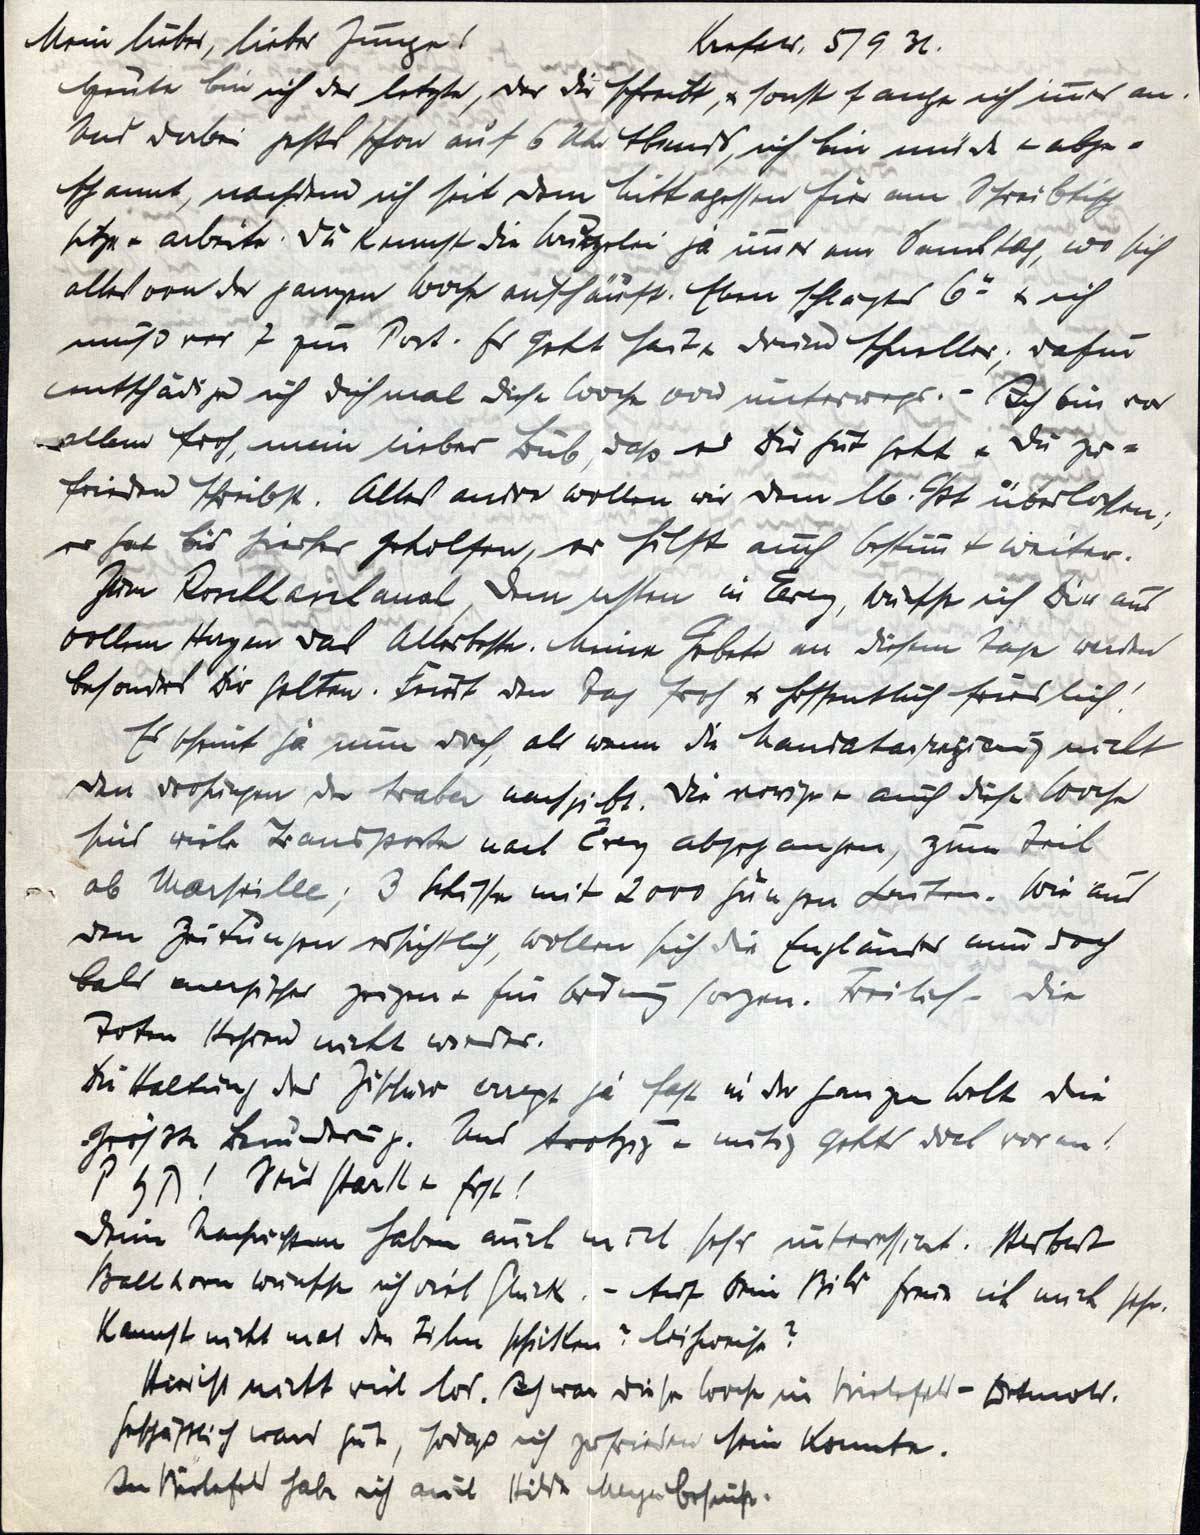 Mein lieber, lieber Junge! Krefeld. 5/9 36.
Heute bin ich der letzte, der dir schreibt, & sonst fange ich immer an.
Und dabei gehts schon auf 6 Uhr Abends, ich bin müde & abge-
spannt, nachdem ich seit dem Mittagessen hier am Schreibtisch
sitze & arbeite. Du kennst die ja immer am Samstag, wo sich
alles von der ganzen Woche aufhäuft. Eben schlagts 6 & ich
muss vor 7 zur Post. Es geht heute drum schneller; dafür
entschädige ich dich mal diese Woche von unterwegs. - Ich bin vor
allem froh, mein lieber Bub, dass es Dir gut geht & Du zu-
frieden schreibst. Alles andre wollen wir dem lb. Gtt überlassen;
er hat bis hierher geholfen, er hilft auch bestimmt weiter.
Zum Roschhaschanah, dem ersten in Erez, wünsche ich Dir aus
vollem Herzen das Allerbeste. Meine Gebete an diesem Tage werden
besonders Dir gelten. Feiert den Tag froh & hoffentlich friedlich!
Es scheint ja nun doch, als wenn die Mandatarregierung nicht
den Drohungen der Araber nachgibt. Die vorige & auch diese Woche
sind viele Transporte nach Erez abgegangen, zum Teil
ab Marseille; 3 Schiffe mit 2000 jungen Leuten. Wie aus
den Zeitungen ersichtlich, wollen sich die Engländer nun doch
bald energischer zeigen & für Ordnung sorgen. Freilich - die
Toten kehren nicht wieder.
Die Haltung des Jischuw erregt ja fast in der ganzen Welt die
größte Bewunderung. Und trotzig & mutig gehts doch voran!
חזק! Seid stark & fest!
Deine Nachrichten haben auch mich sehr interessirt. Herbert
Ballhorn wünsche ich viel Glück. - Auf Dein Bild freue ich mich sehr.
Kannst nicht mal den Film schicken? leihweise?
Hier ist nicht viel los. Ich war diese Woche in Bielefeld - Detmold.
Geschäftlich wars gut, sodass ich zufrieden sein konnte.
In Bielefeld habe ich auch Hilde Meyer besucht.